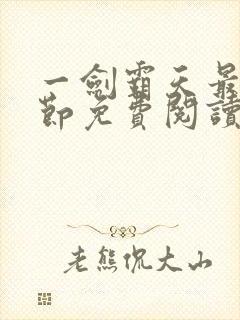 一劍霸天最
節免費閱讀
老熊侃大山